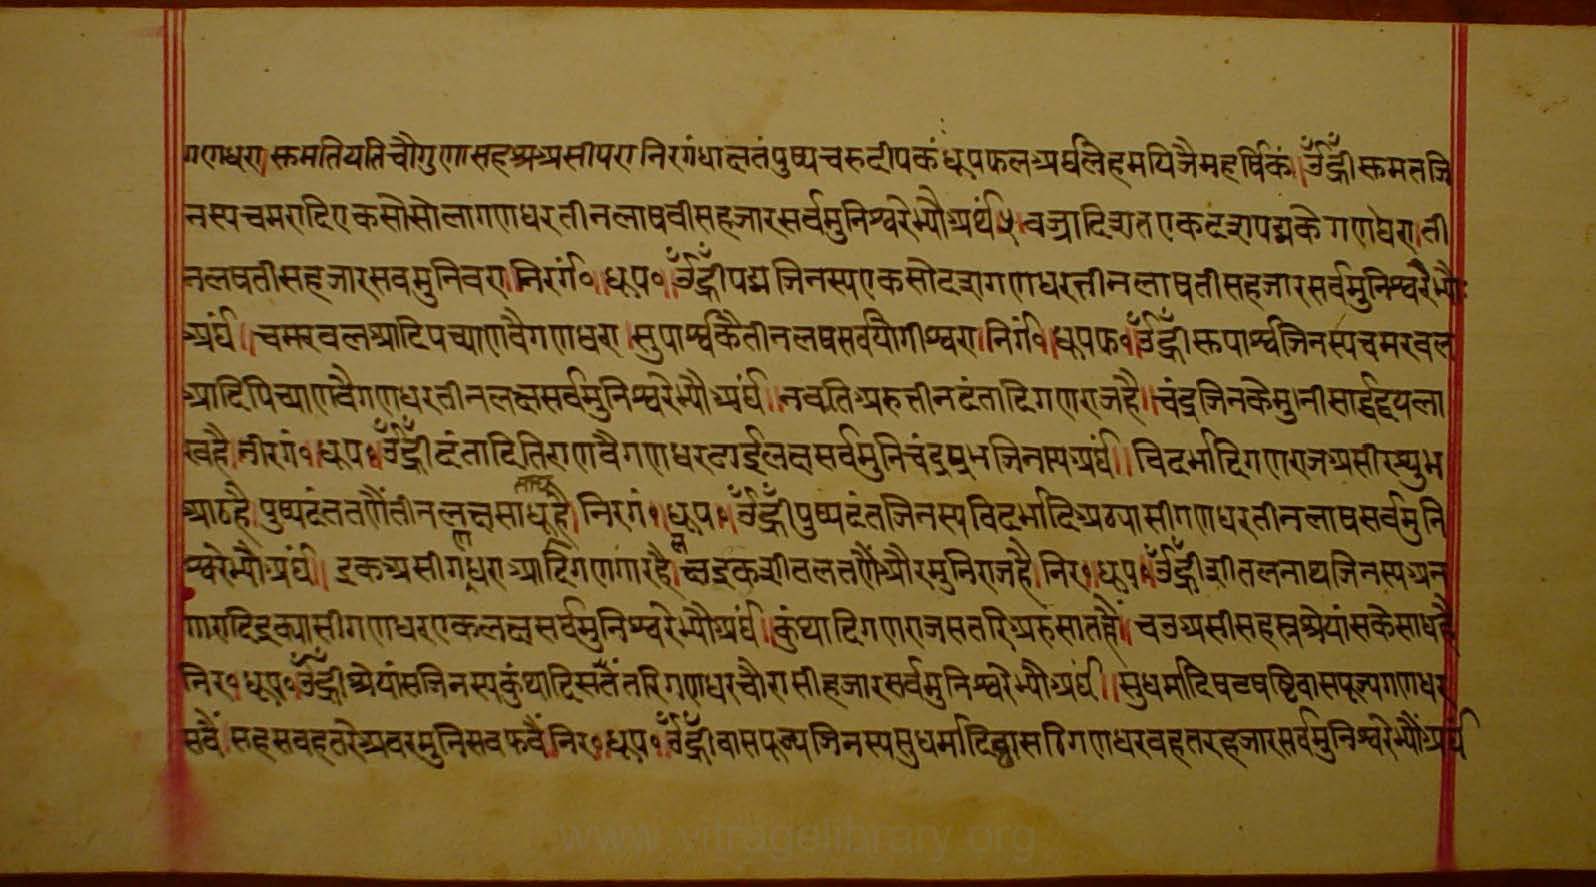 गणधरा।सुमतियतिचौगुणासहश्रअसीपरा निरगंधाक्षतंपुष्पचरुदीपकं धूपफलअर्घलेहमयिजैमहर्षिकं।ॐह्रीं सुमतजि
नस्यचमरादिएकसौसोलागणधरतीनलाषवीसहजारसर्वमुनिश्वरेभ्यौअर्घं५।वज्रादिशतएकदशपद्मके गणधरा।ती
नलषतीसहजारसवमुनिवरा।निरगं॰।धूप॰।ॐह्रींपद्मजिनस्यएकसोदशगणधरत्तीनलाषतीसहजारसर्वमुनिश्वरेभ्यौः
अर्घं।।चमरवलआदिपच्याणवैगणधरा।सुपार्श्वकैतीनलषसर्वयौगीश्वरा।निर्गं॰।धूपफ॰।ॐह्रींसुपार्श्वजिनस्यचमरवल
आदिपिच्याणवैगणधरतीनलक्षसर्वमुनिश्वरेभ्यौअर्घं।।नवतिअरुत्तीनदंतादिगणराजहै।चंद्रजिनकैमुनीसार्द्धद्वयला
खहै।नीरगं॰।धूप॰।ॐह्रींदंतादितिराणवैगणधरढाईलक्षसर्वमुनिचंद्रप्रभजिनास्यअर्घं।।विदर्भादिगणराजअसीरस्युभ
आठहै।पुष्पदंततणैंतीनलक्षसाधूहै।निरगं॰।धूप॰।ॐह्रींपुष्पदंतजिनस्यविदर्भादिअठ्यासीगणधरतीनलाषसर्वमुनि
श्वरेभ्यौअर्घं।इकअसीगणधराआदिगणगारहै।लक्षइकशीतलतणैंऔरमुनिराजहै।निर॰।धूप॰।ॐह्रींशीतलनाथजिनस्यअन
गारादिइक्यासीगणधरएकलक्षसर्वमुनिश्वरेभ्यौअर्घं।।कुंथादिगणराजसतरिअरुसातहैं।चउअसीसहस्रश्रेयांसकैसाधहै
निर॰।धूप॰।ॐह्रींश्रेयांसजिनस्यकुंथादिसतंतरिगणधरचौरासीहजारसर्वमुनिश्वरेभ्यौअर्घं।।सुधर्मादिषटषष्टिवासपूज्यगणधर
सवैं।सहसवहतरेअवरमुनिसवफवैं।निर॰।धूप॰।ॐह्रींवासपूज्यजिनस्यसुधर्मादिछासठिगणधरवहतरहजारसर्वमुनिश्वरेभ्यौंअर्घं
www.vitragelibrary.org